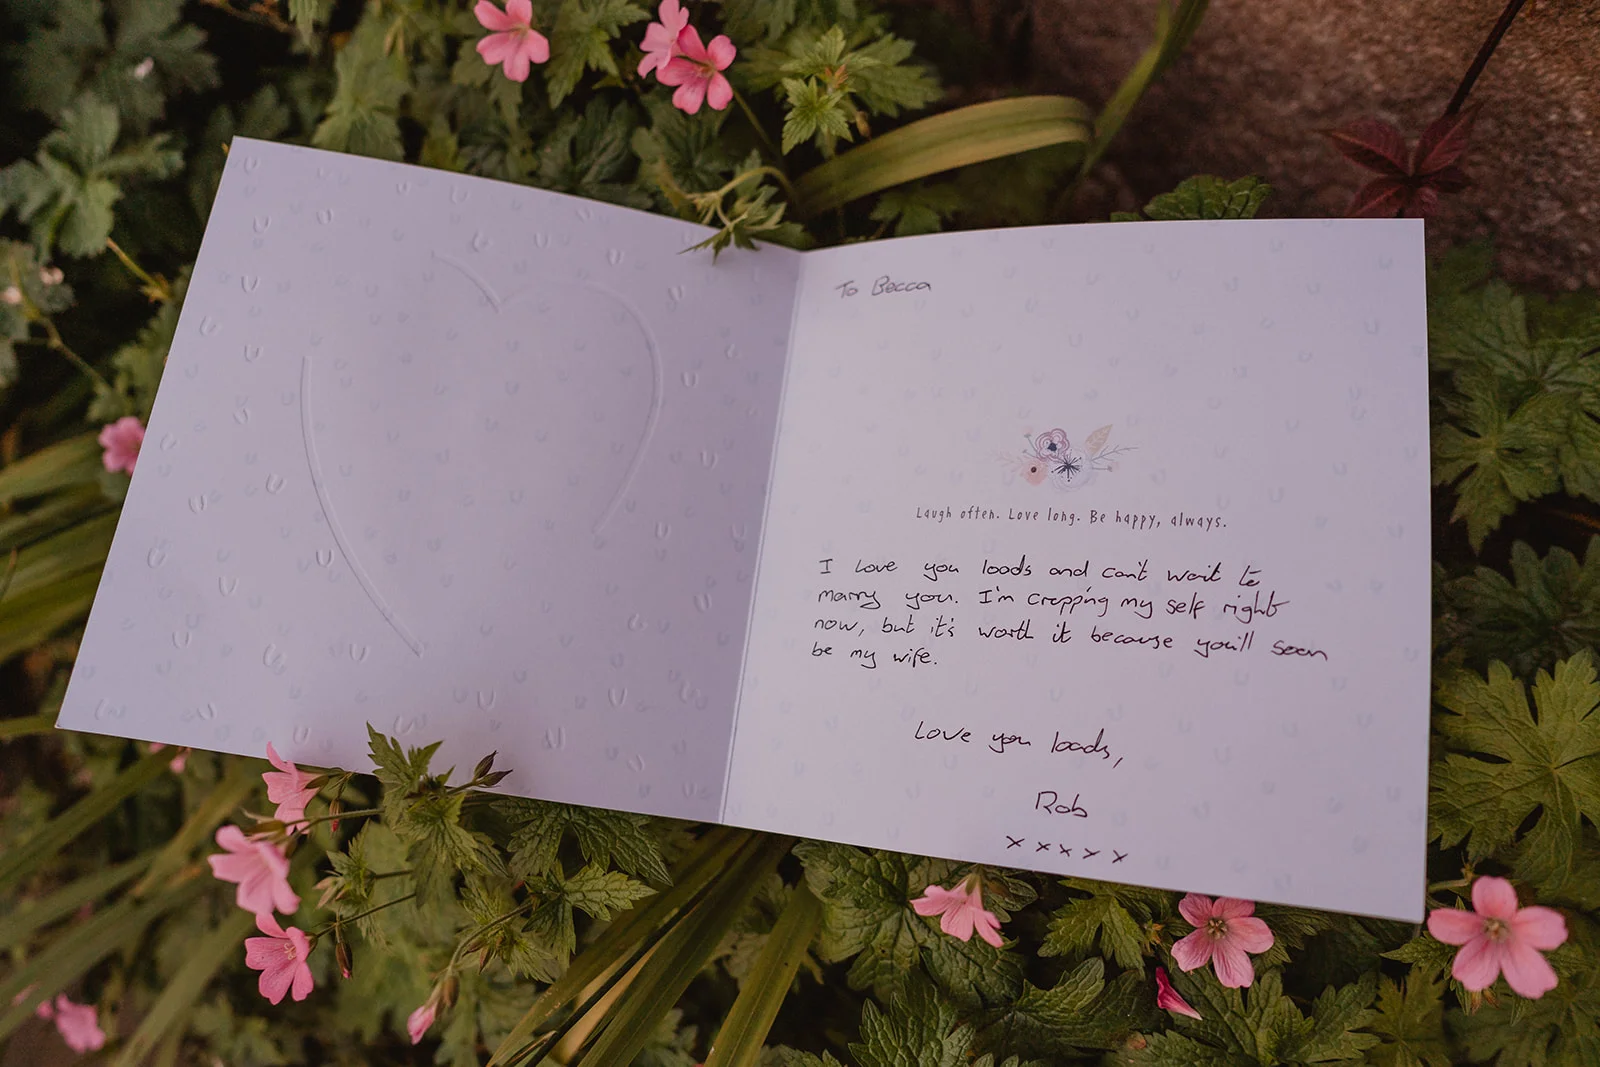 To Becca
Laugh often. Love long. Be happy, always.
I love you loads and can't wait to
marry you. I'm crapping my self right
now, but it's worth it because you'll soon
be my wife.
Love you loads,
Rob
x x x x x